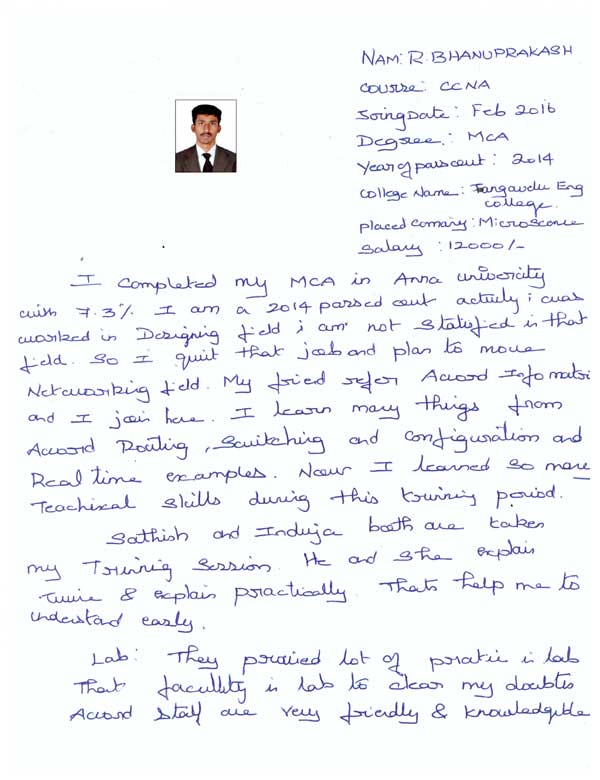 NAM: R. BHANUPRAKASH
COURSE: CCNA
Joing Date: Feb 2016
Degree: MCA
Year of passout: 2014
College Name: Tangavelu Eng
college.
placed comany: Microscence
Salary: 12000/-
I completed my MCA in Anna univercity
with 7.3%. I am a 2014 passed out actuly i was
worked in Designing field i am not Statisfied in that
field. So I quit that job and plan to move
Networking field. My fried refer Accord Informatri
and I join here. I learn many things from
Accord Routing, Switching and configuration and
Real time examples. Now I learned so more
Teachical skills during this trining period.
Sathish and Induja booth are taken
my Trining Session. He and She explain
twice & explain practically. Thats help me to
understand easly.
Lab: They provied lot of pratic in lab
That facullity in lab to clear my doubts
Accord Staff are very friendly & knowledgible